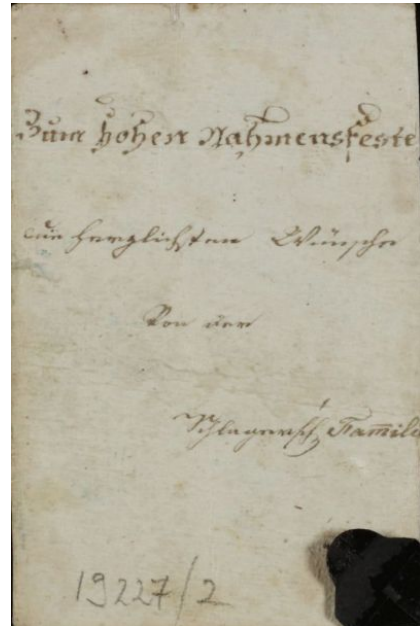 Zum hohen Nahmensfeste
die herzlichsten Wünsche
Von der
Familie
19227/2